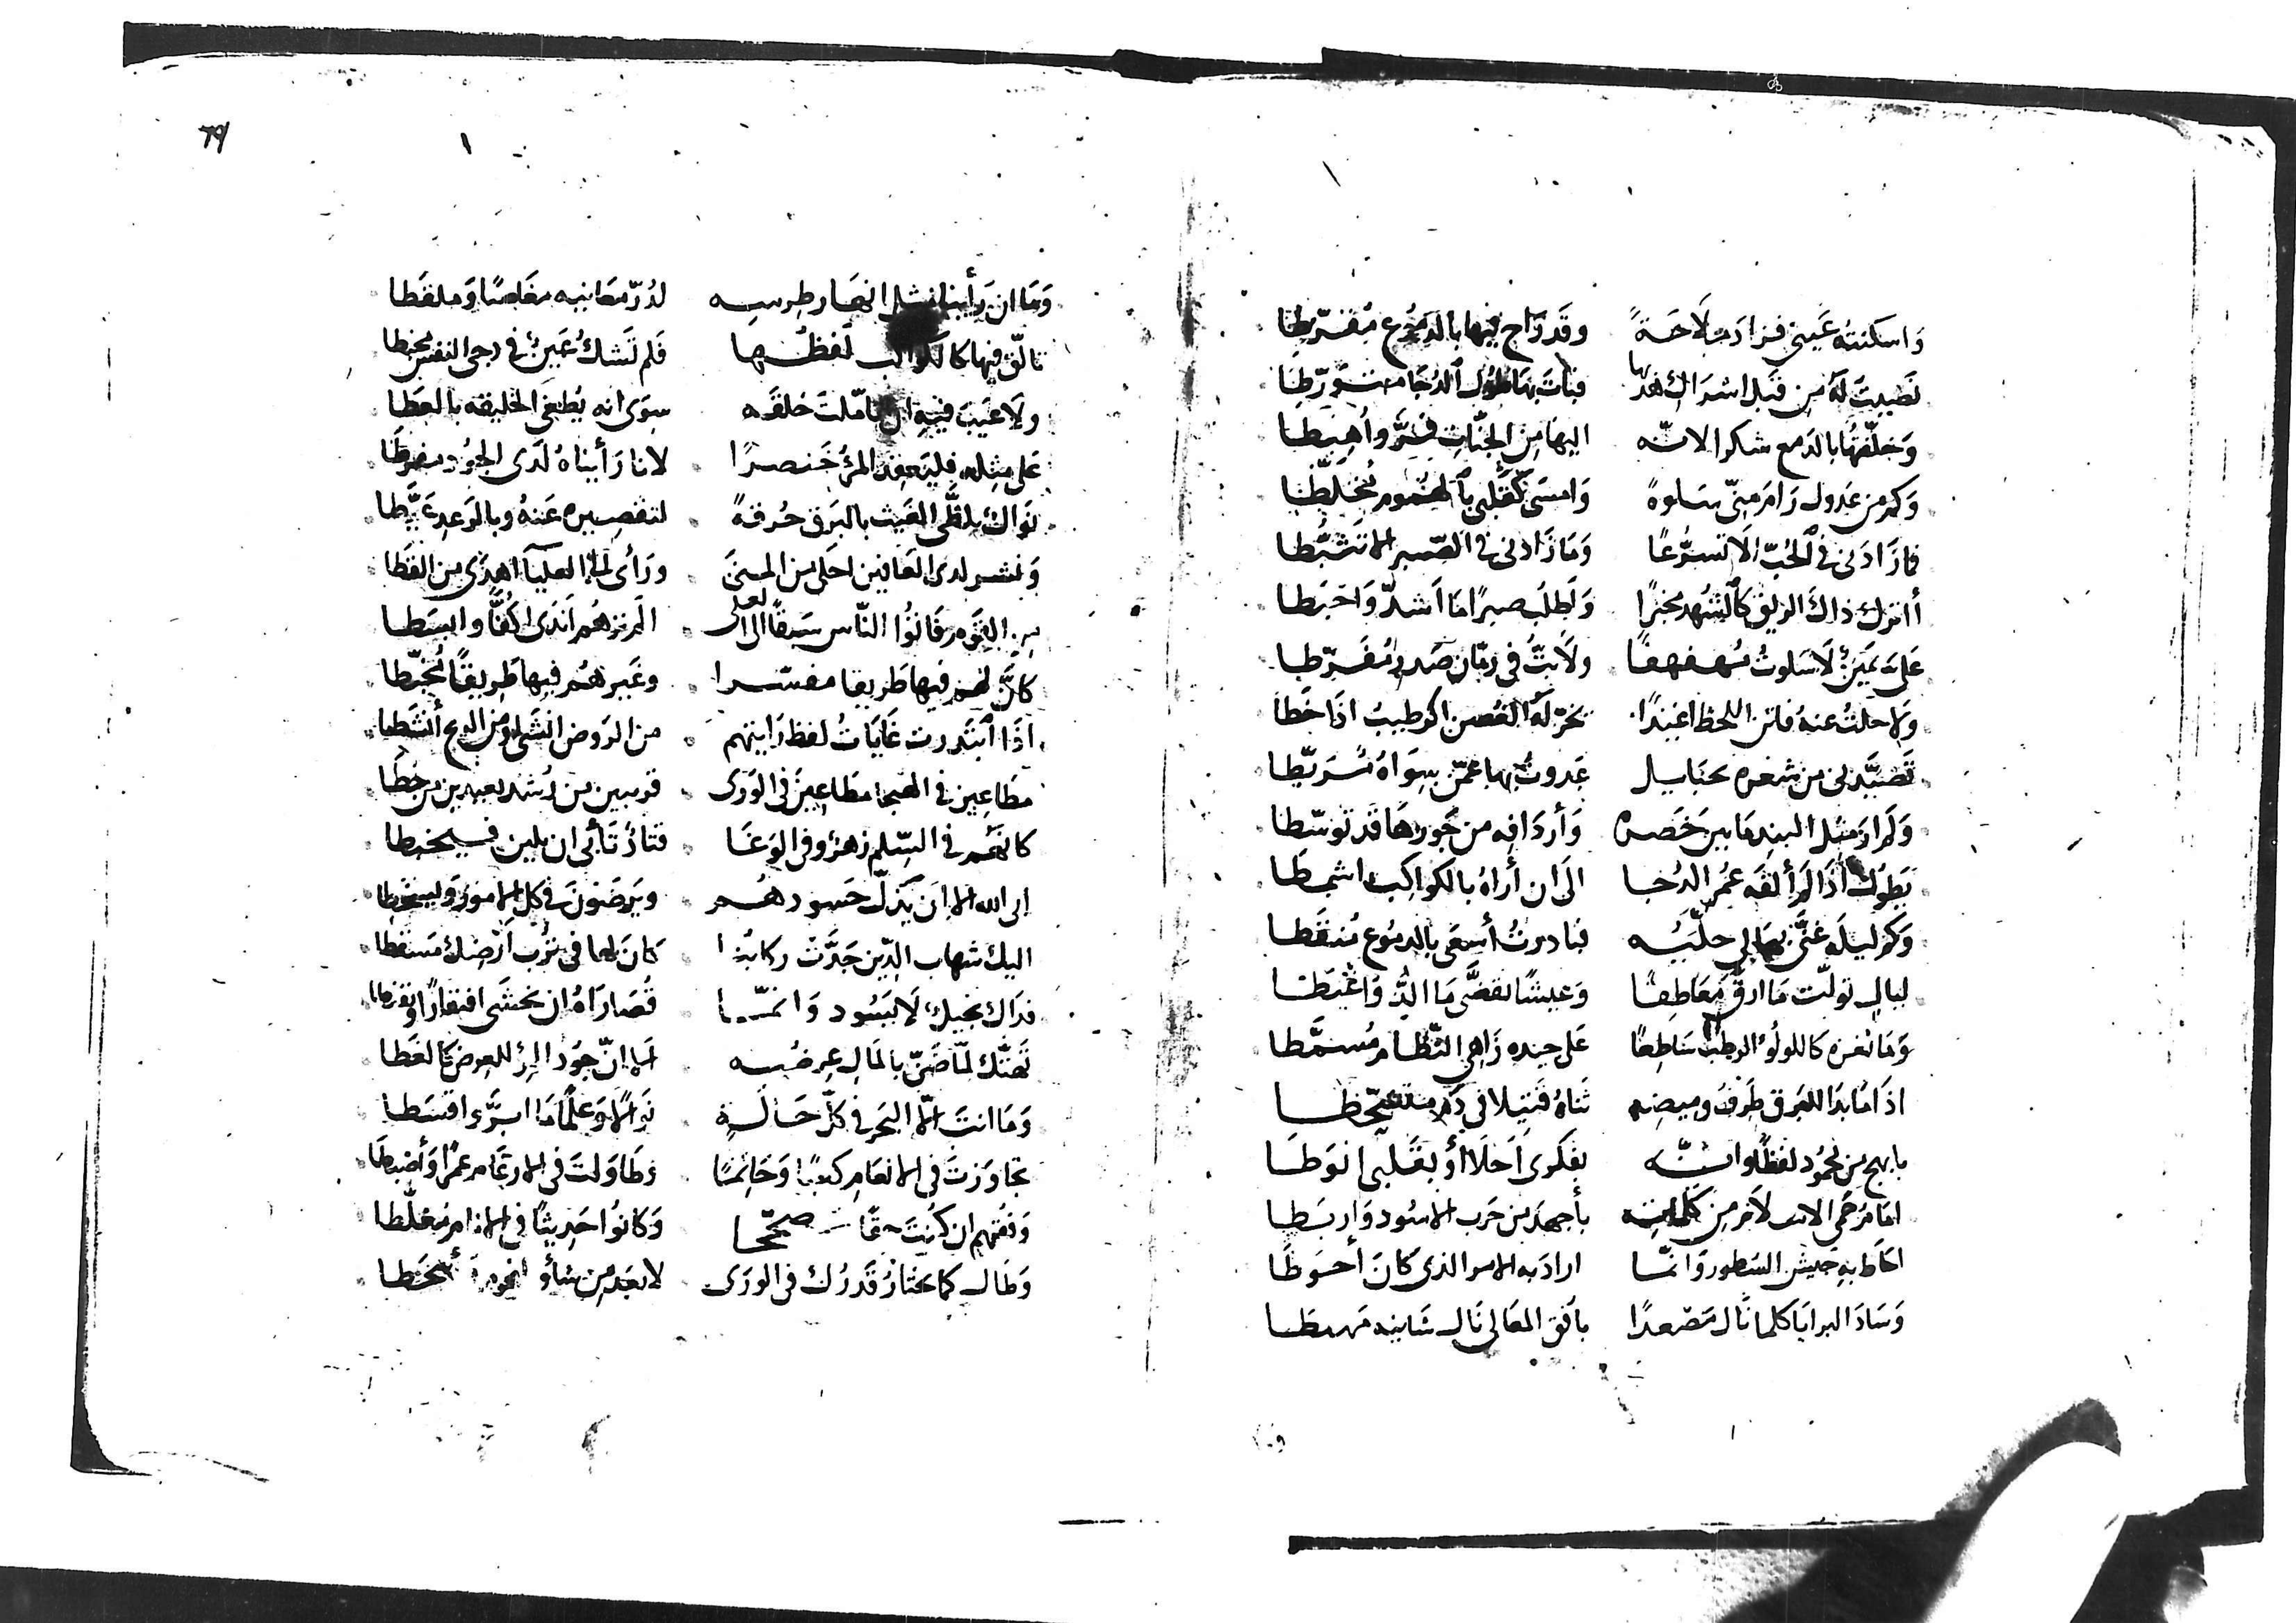 وَاسكنتهُ عَيني فزادَت مَلَاحَةً وقَد رَاح فيها بالدمُوع مُقَرّطا
نَصَبتُ لَهُ مِن قَبل اشرَاك هُدبها فبَات بهَا طُول الدُجَا متورّطا
وَخلّفتُها بالدَمع شكرا لانّه اليهَا مِن الجنّات فرَّ واُهبِطا
وَكم من عَدول رَامَ مِنّي سَلوةً وَامسَى كَقَلبي بالهُمُوم مُخَلّطا
فمَا زَادَني في الحُبّ اِلَا تسرُّعًا وَمَا زَادني في الصّبر الا تَثَبُّطا
أاترك ذاكَ الريق كالشهد مخبرًا وَاَطلبُ صبرًا مَا اَشدّ وَاحبَطا
عَليَّ يَمينٌ لَا سَلوتُ مُهفهفًا ولَا بتُّ في رمّان صَدرٍ مُفَرّطا
ولا حلتُ عنهُ فاتن اللحظ اغيدًا يخرّ لَهُ الغصن الرطيبُ اذَا خَطا
تَصَيَّدني من شعره بحبَايل غَدوتُ بهَا عمّن سِوَاهُ مُرَبّطا
وَلَم ارَ مثل البند مَا بين خَصره وَأردَافه من جَورهَا قَد توسّطا
يَطُول اذَا لَم أَلقَه عُمر الدُجا الَى ان أرَاهُ بالكواكب اشمطَا
وَكم ليلَه غنَّى بهَا لي حلّيُه فبادرتُ أسعَى بالدمُوع مُنقّطا
ليالٍ تولّت مَا ارقَّ مَعَاطِفًا وَعيشًا تقضَّى مَا الذَّ وَاغبَطا
وَمَا ثغره كاللولُؤ الرطب سَاطِعًا عَلَى جيده زَاهي النّظام مُسمَّطا
اذَا مَا بدَا للبَرق طَرفُ وميضه ثَناهُ قَتيلا في دَمٍ متشحّطا
بابهج مِن محمُود لفظًا وانّه بفكري اَحلَا أو بقَلبي انوَطَا
امَامٌ حَمَى الاسلَام مِن كلمَاته بأجهدَ من حَرب الاسُود وَاربَطا
احَاط بهِ جَيش السطور وَانّمَا ارادَ به الامر الذي كَانَ احوَطَا
وَسَادَ البرايَا كلما نَال مَصعدًا بافق المعَالي نَال شانيه مَهبطا
79
وَمَا ان رَأينا مثل انهَار طِرسِه لدُرّ مَعَانيه مغَاصًا وَملقَطا
تالّق فيها كالكواكب لَفظُها فَلم تَشكُ عَينٌ في دجى النقس مخبطا
ولَا عَيبَ فيهِ ان تامّلت خلقَه سِوَى انه يُطغي الخليقه بالعَطا
عَلَى مِثله فليَعقد المرءُ خَنصرًا لأنا رَأيناهُ لَدَى الجُود مفرِطَا
نَوَالك يلظّى الغيث بالبَرق حُرقةً لتقصيره عَنهُ وبالرَعد عَيَّطا
وَبشر لدى العَافين احلَى من المنَى ورَأى لدى العليآ اهدَى من القَطا
من القَوم فَاتُوا النّاس سَبقًا الى العلى المَ ترَهُم اَندَى اكُفًّا وابسَطا
كانَّ لهم فيها طَريقا مفسّرا وغَيرهُم فيها طَريقًا مُخبّطا
اذَا ابتَدرت غَايَاتُ لفظ رَايتهم من الرَوض انشَى او من الريح أنشَطا
مطَاعين في الهيجا مطَاعيمُ في الوَرَى قريبين من رُشد بعيدين من خطَا
كانَّهُم في السِّلم زهرٌ وفي الوَغَا قتَادٌ تأَبَّى ان يلين فيخبطا
ابى الله الا ان يَذلّ حَسودهُم ويَرضَونَ في كلّ الامور وَيسخطا
اليكَ شهاب الدّين جَدَّت ركابُنا كَانَ لها في تُرب اَرضِكَ مَسقطا
فدَاك بخيلٌ لَا يَسُود وَانّمَا قُصَارَاهُ ان يخشَى افتقارًا ويقنطا
تَهتّك لمّا ضَنّ بالمَال عِرضُه اَلا انّ جُود المرء للعرض كالغطَا
وَمَا انتَ الّا البَحر في كلّ حَالَةٍ نوالًا وَعلمًا مَا ابرَّ وَاقسَطا
تجاوَزتَ في الانعَام كعبًا وَحَاتمًا وَطَاوَلتَ في الارغَام عَمرًا وَأضبطَا
وَفُتّهم ان كُنتَ صحّحا وَكانُوا حَديثًا في الانام مُغلّطا
وَطَال كمَا تختَارُ قَدرُك في الورَى لابعَد مِن شأو النجُوم أشحَطا